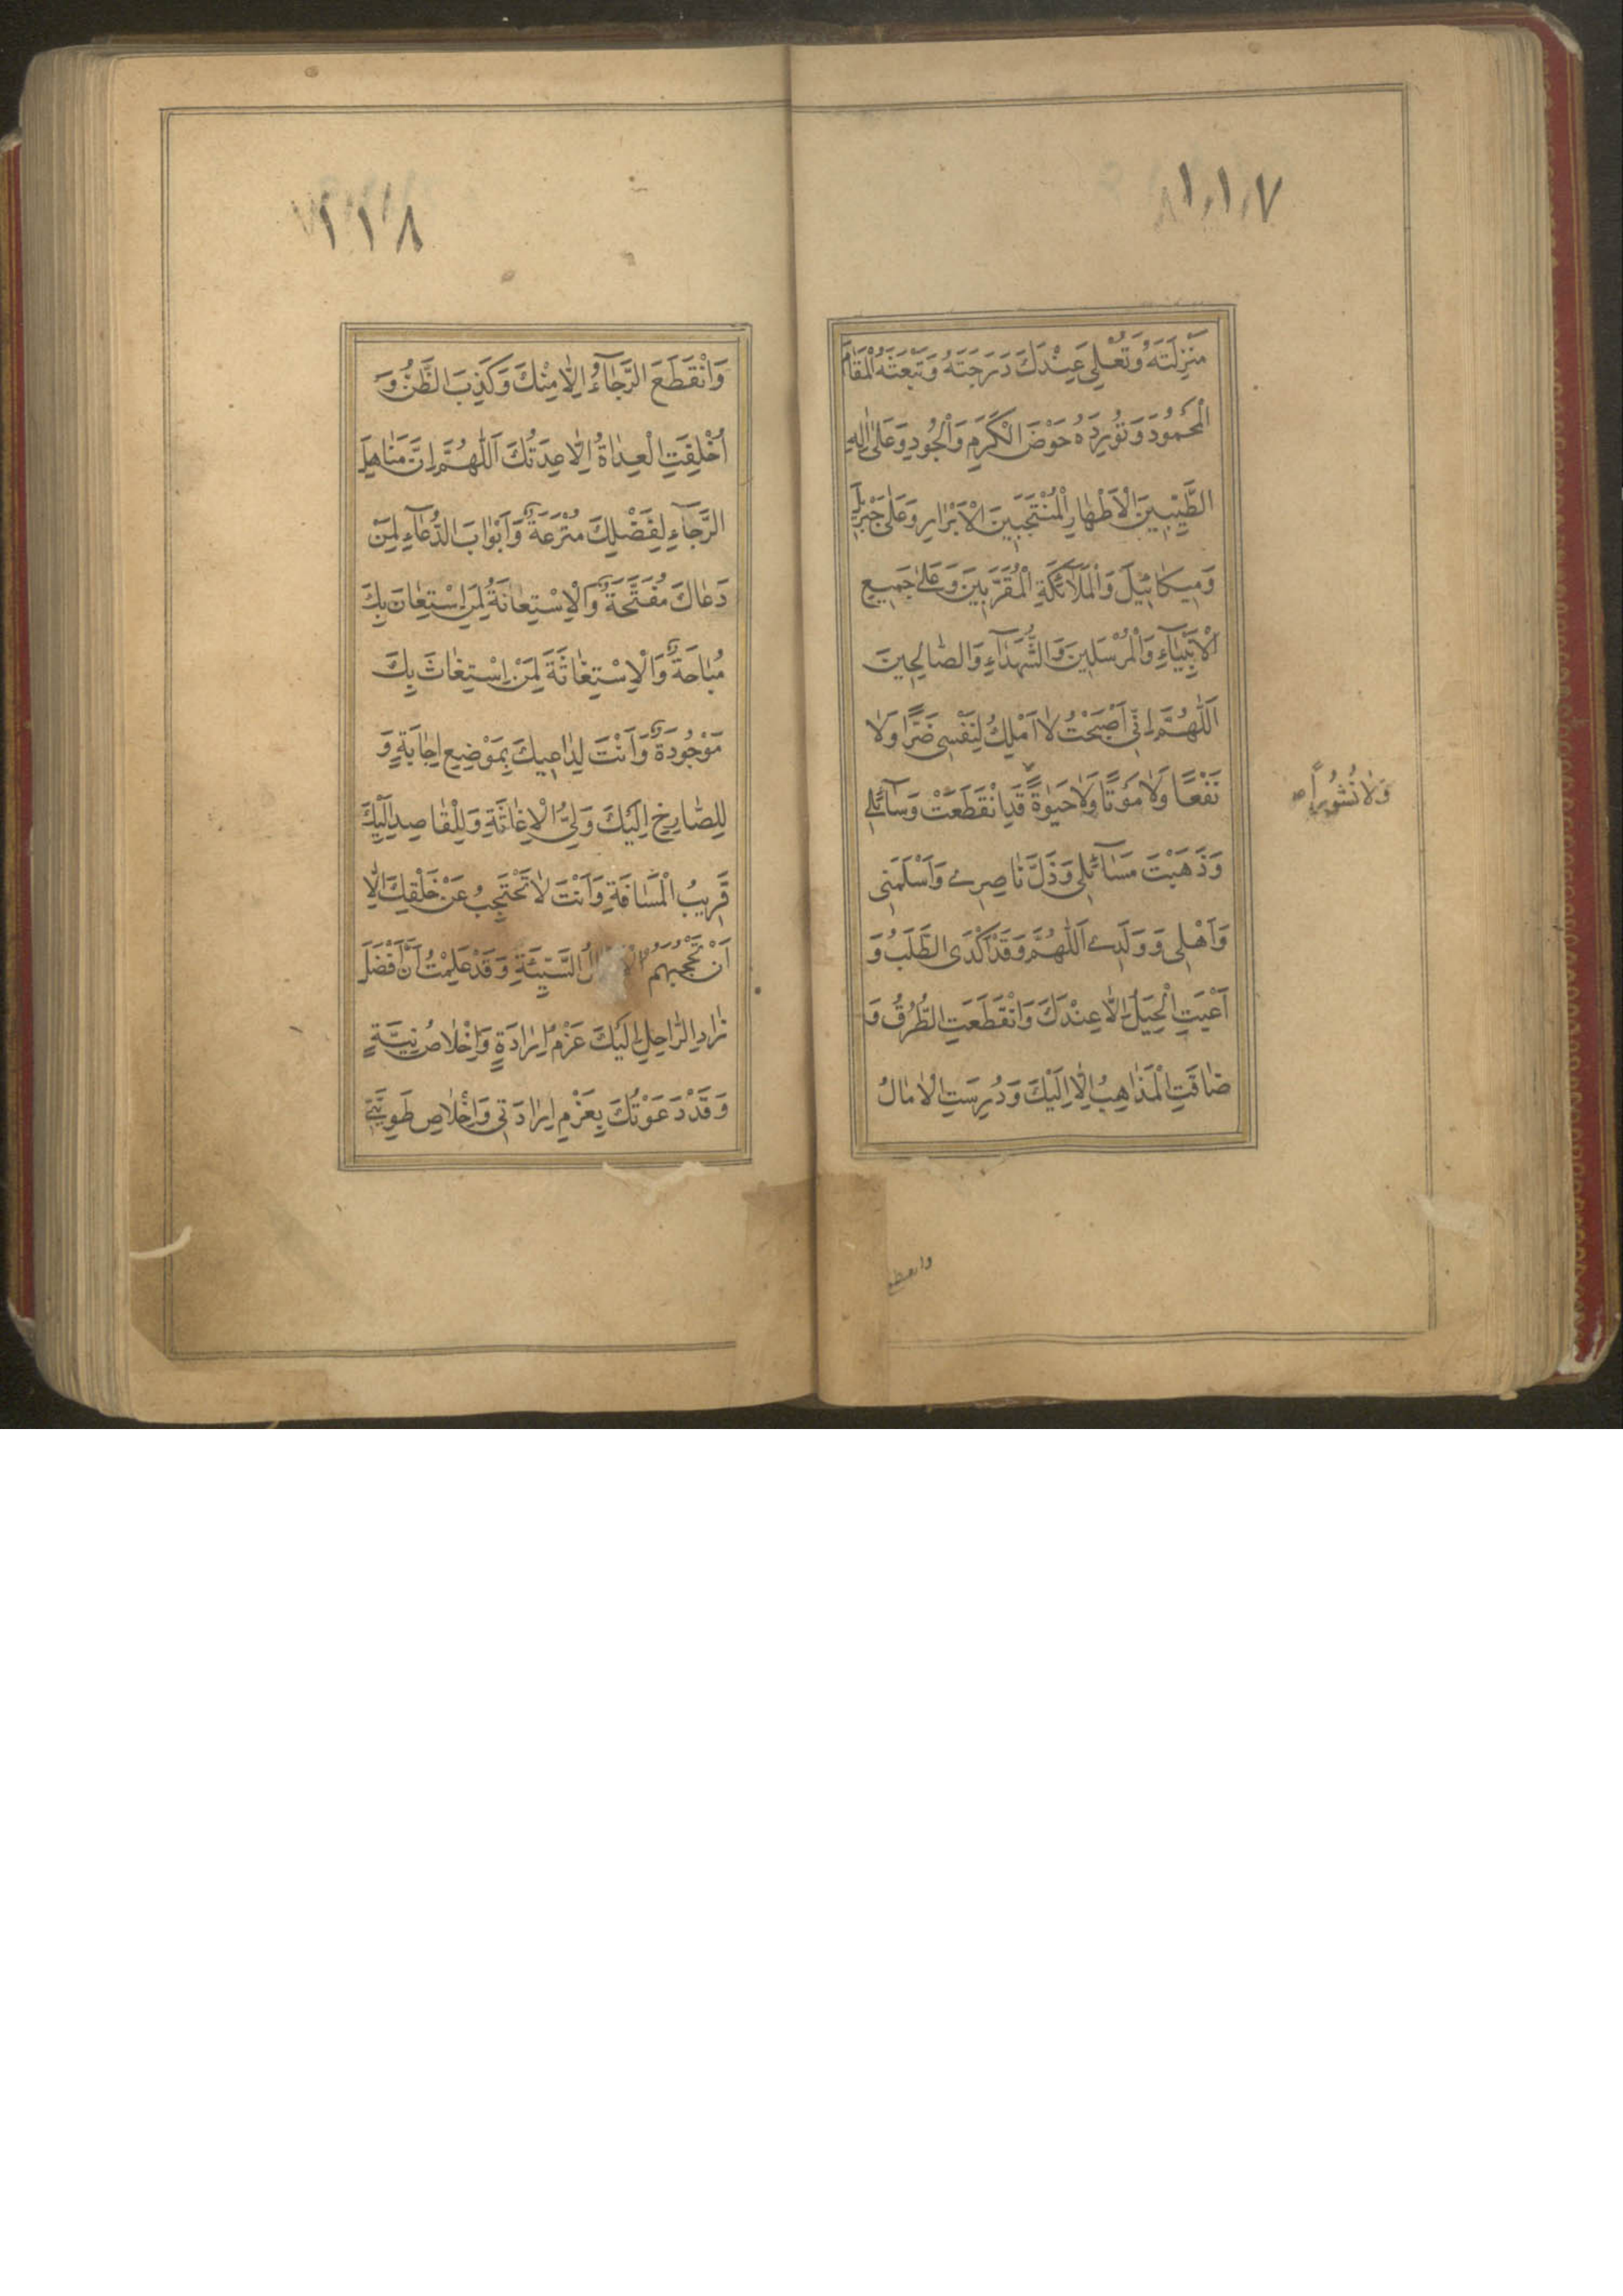 ١١٧
مَنْزِلَتَهُ وَتُعْلِيَ عِنْدَكَ دَرَجَتَهُ وَتَبْعَثَهُ الْمَقَامَ
الْمَحْمُودَ وَتُورِدَهُ حَوْضَ الْكَرَمِ وَالْجُودِ وَعَلىٰ اٰلِهِ
الطَّيِّبِينَ الْاَطْهٰارِ الْمُنْتَجَبِينَ الْاَبْرٰارِ وَعَلىٰ جَبْرَئِيلَ
وَمِيكٰائِيلَ وَالْمَلٰآئِكَةِ الْمُقَرَّبِينَ وَعَلىٰ جَمِيعِ
الْاَنْبِيٰآءِ وَالْمُرْسَلِينَ وَالشُّهَدٰآءِ وَالصّٰالِحِينَ
اَللّٰهُمَّ اِنِّي اَصْبَحْتُ لٰا اَمْلِكُ لِنَفْسِي ضَرًّا وَلٰا
نَفْعًا وَلٰا مَوْتًا وَلٰا حَيٰوةً قَدِ انْقَطَعَتْ وَسٰآئِلِي
وَلٰا نُشُورًا صح
وَذَهَبَتْ مَسٰآئِلِي وَذَلَّ نٰاصِرِي وَاَسْلَمَنِي
وَاَهْلِي وَوَلَدِي اَللّٰهُمَّ وَقَدْ اَكْدَى الطَّلَبُ وَ
اَعْيَتِ الْحِيَلُ اِلّٰا عِنْدَكَ وَانْقَطَعَتِ الطُّرُقُ وَ
ضٰاقَتِ الْمَذٰاهِبُ اِلّٰا اِلَيْكَ وَدُرِسَتِ الْاٰمٰالُ
وانقطع
١١٨
وَانْقَطَعَ الرَّجٰآءُ اِلّٰا مِنْكَ وَكَذِبَ الظَّنُّ وَ
اُخْلِفَتِ الْعِدٰاةُ اِلّٰا عِدَتُكَ اَللّٰهُمَّ اِنَّ مَنٰاهِلَ
الرَّجٰآءِ لِفَضْلِكَ مُتْرَعَةٌ وَاَبْوٰابَ الدُّعٰآءِ لِمَنْ
دَعٰاكَ مُفَتَّحَةٌ وَالْاِسْتِعٰانَةُ لِمَنِ اسْتَعٰانَ بِكَ
مُبٰاحَةٌ وَالْاِسْتِغٰاثَةَ لِمَنْ اِسْتَغٰاثَ بِكَ
مَوْجُودَةٌ وَاَنْتَ لِدٰاعِيكَ بِمَوْضِعِ اِجٰابَةٍ وَ
لِلصّٰارِخِ اِلَيْكَ وَلِيُّ الْاِغٰاثَةِ وَلِلْقٰاصِدِ اِلَيْكَ
قَرِيبُ الْمَسٰافَةِ وَاَنْتَ لٰا تَحْتَجِبُ عَنْ خَلْقِكَ اِلّٰا
اَنْ تَحْجُبَهُمُ السَّيِّئَةِ وَقَدْ عَلِمْتُ اَنَّ اَفْضَلَ
زٰادِ الرّٰاحِلِ اِلَيْكَ عَزْمُ اِرٰادَةٍ وَاِخْلٰاصُ نِيَّةٍ
وَقَدْ دَعَوْتُكَ بِعَزْمِ اِرٰادَتِي وَاِخْلٰاصِ طَوِيَّتِي